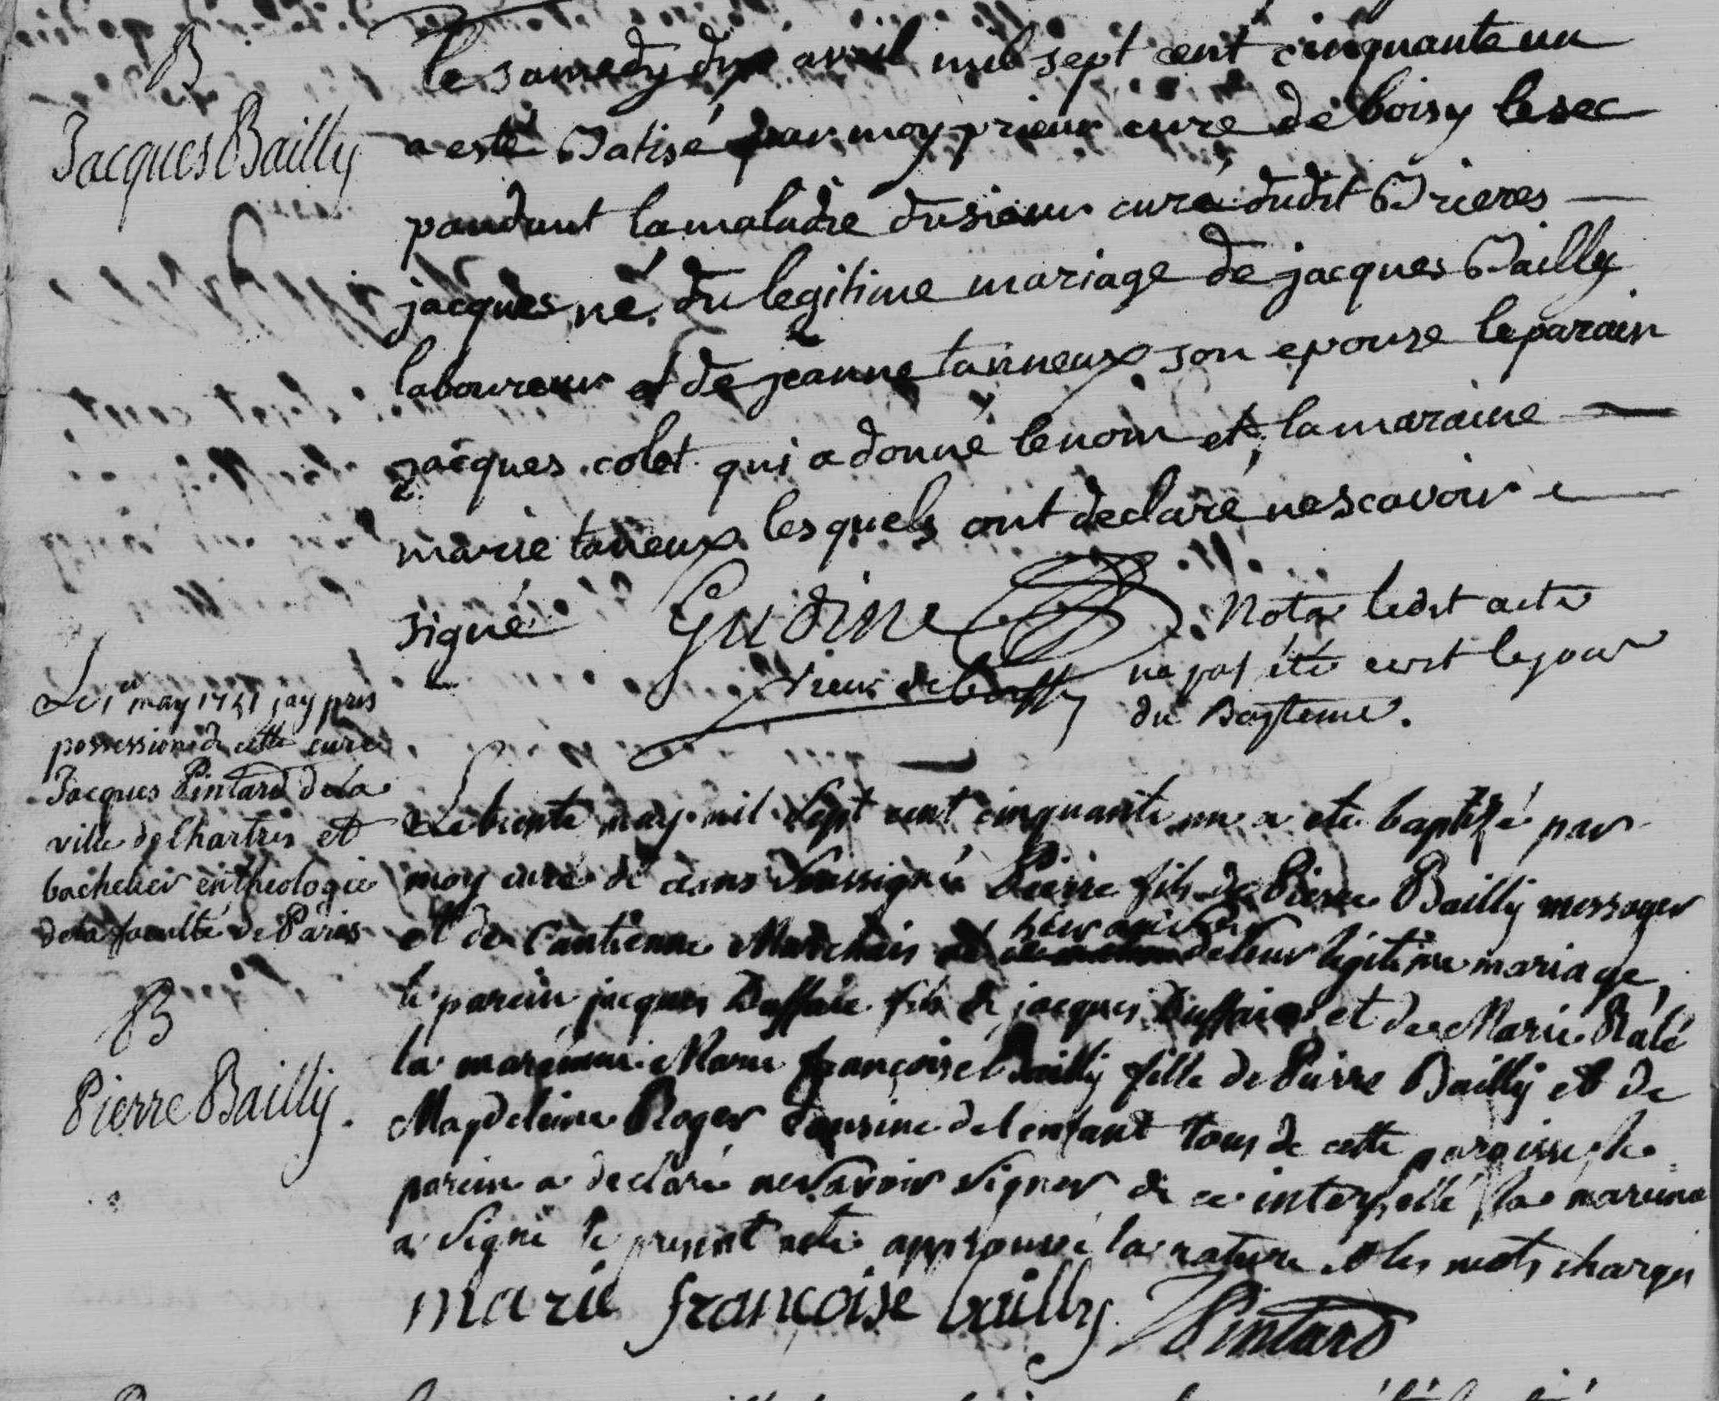 B
Jacques Bailly
le samedy dix avril mil sept cent cinquante un
a esté Batisé par moy prieur curé de boisy le sec
pandant la maladie du sieur curé dudit Brieres
jacques né du legitime mariage de jacques Bailly
laboureur et de jeanne tanneux son epouse le parain
jacques colet qui a donné le nom et la maraine
marie taneux lesquels ont declaré ne scavoir
signé
Gudine
prieur de boissy
Nota ledit acte
na pas été ecrit le jour
du Bapteme.
Le 1er may 1751 jay pris
possession de cette cure
Jacques Pintard de la
ville de Chartres et
bachelier en theologie
de la faculté de Paris
Le trente may mil sept cent cinquante un a eté baptizé par
moy curé de ceans soussigné Pierre fils de Pierre Bailly messager
et de Cantienne Marchais de leur légitime mariage,
le parein jacques Duffaie fils de jacques Duffaie et de Marie Ralé
la mareinne Marie françoise Bailly fille de Pierre Bailly et de
Magdeleine Roger cousine de lenfant tous de cette paroisse, le
parein a declaré ne savoir signer de ce interpellé la mareine
a signé le present acte approuvé la rature et les mots chargés
B
Pierre Bailly.
marie françoise bailly
Pintard